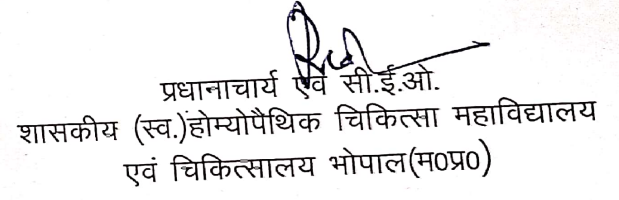 प्रधानाचार्य एवं सी.ई.ओ.
शासकीय (स्व.)होम्योपैथिक चिकित्सा महाविद्यालय
एवं चिकित्सालय भोपाल(म0प्र0)